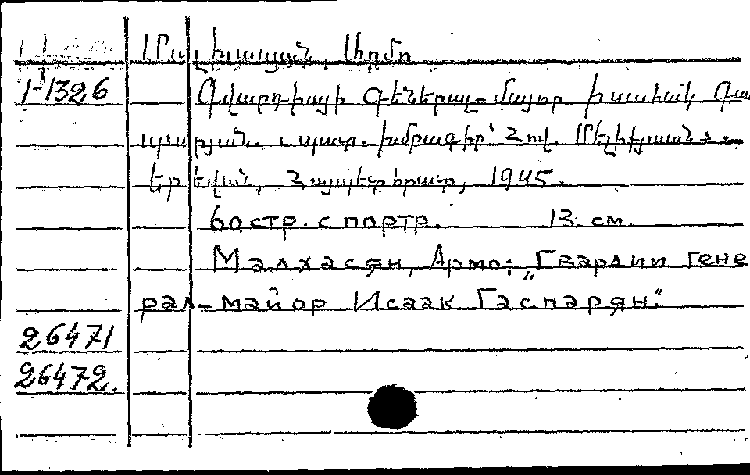 Մալխասյան, Արմո
1-1326 Գվարդիայի գեներալ-մայոր Իսահակ Գաս
պարյան. պատ. խմբագիր՝ Հով. Մելիքյան
Երևան, Հայպետհրատ, 1945.
60 стр. с портр. 13 см.
Малхасян, Армо: „Гвардии гене
рал-майор Исаак Гаспарян."
26471
26472.